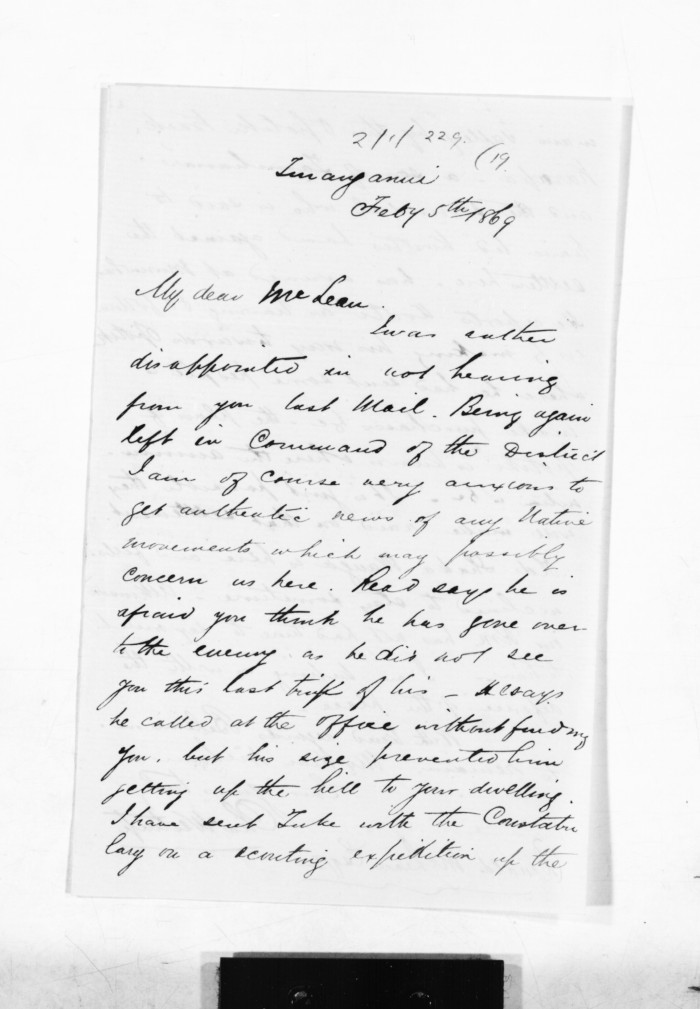 2/1/229. (19
Turanganui
Feby 5th 1869
My dear McLean.
I was rather
disappointed in not hearing
from you last Mail. Being again
left in Command of the District
I am of course very anxious to
get authentic news of any Native
movements which may possibly
concern us here. Read says he is
afraid you think he has gone over
to the enemy as he did not see
you this last trip of his - He says
he called at the office without finding
you, but his size prevented him
getting up the hill to your dwelling.
I have sent Tuke with the Constabu
lary on a scouting expedition up the